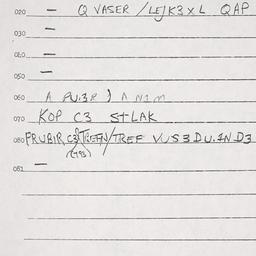 020 — Q VASER /LEJK3XL QAP
030 —
040 —
050 —
060 A PU.3R ) A N1M
070 KOP C3 S+LAK
080 PRUBIR C3 /TREF VUS3DU.1ND3
081 —